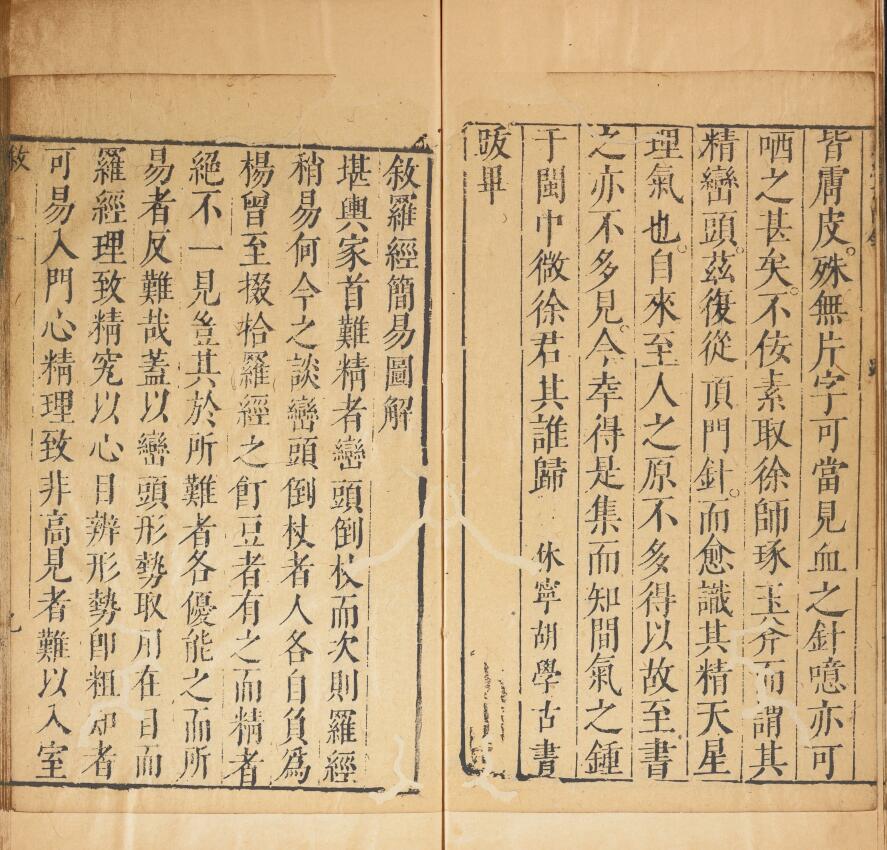 皆膚皮。殊無片字可當見血之針噫亦可
哂之甚矣。不佞素取徐師琢玉斧而謂其
精巒頭。茲復從頂門針。而愈識其精天星
理氣也。自來至人之原不多得以故至書
之亦不多見。今幸得是集而知間氣之鍾
于閩中微徐君其誰歸 休寧胡學古書
跋畢
敘羅經簡易圖解
堪輿家首難精者巒頭倒杖而次則羅經
稍易何今之談巒頭倒杖者人各自負爲
楊曾至掇拾羅經之飣豆者有之而精者
絕不一見豈其於所難者各優能之而所
易者反難哉蓋以巒頭形勢取用在目而
羅經理致精究以心目辨形勢卽粗知者
可易入門心精理致非高見者難以入室
敘